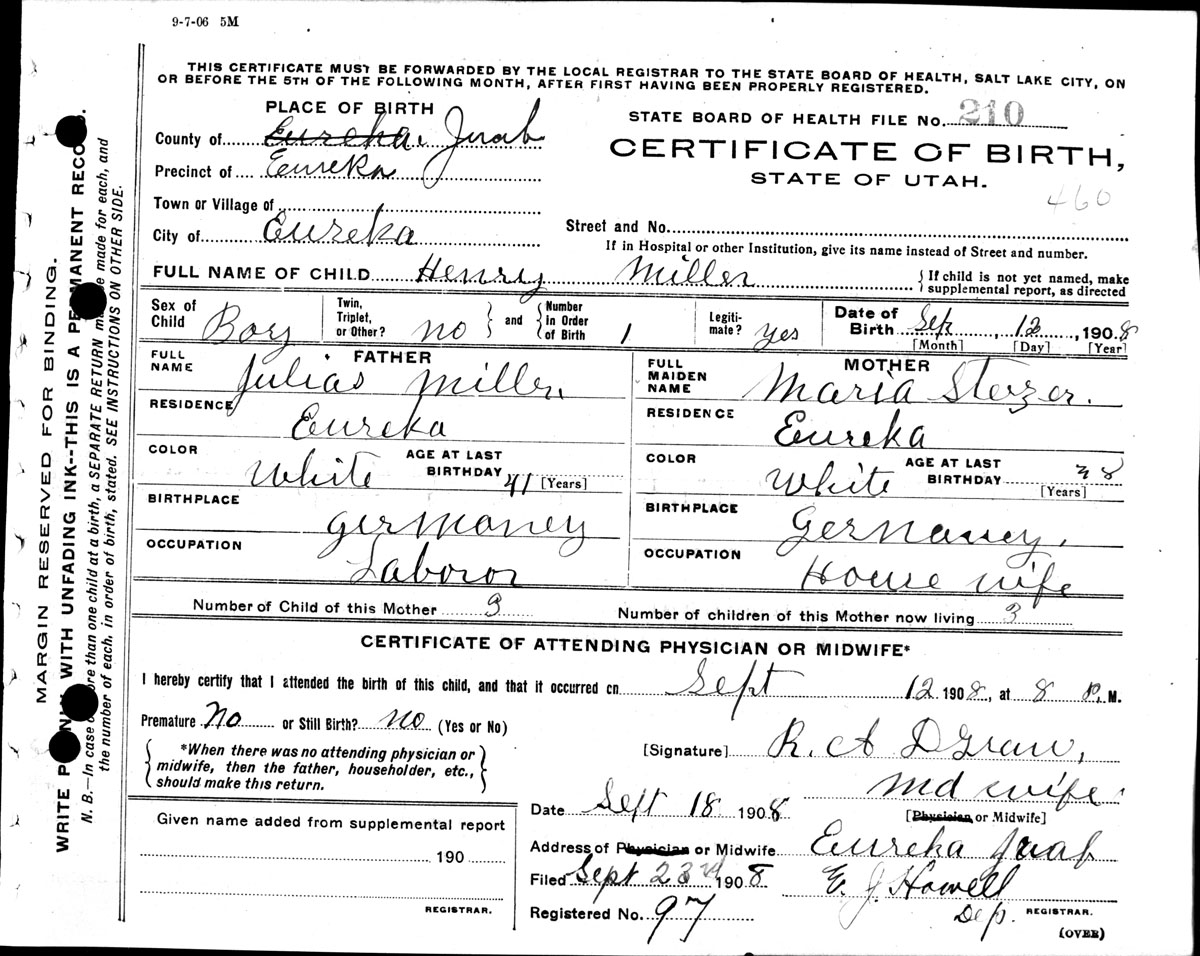 9-7-06 5M
THIS CERTIFICATE MUST BE FORWARDED BY THE LOCAL REGISTRAR TO THE STATE BOARD OF HEALTH, SALT LAKE CITY, ON
OR BEFORE THE 5TH OF THE FOLLOWING MONTH, AFTER FIRST HAVING BEEN PROPERLY REGISTERED.
PLACE OF BIRTH
County of Eureka. Juab
Precinct of Eureka
Town or Village of
City of Eureka
STATE BOARD OF HEALTH FILE No. 210
CERTIFICATE OF BIRTH,
STATE OF UTAH.
460
Street and No.
If in Hospital or other Institution, give its name instead of Street and number.
FULL NAME OF CHILD Henry Miller
If child is not yet named, make
supplemental report, as directed
Sex of Child Boy
Twin, Triplet, or Other? no
and
Number in Order of Birth 1
Legiti-mate? yes
Date of Birth Sep, 12, 1908
[Month] [Day] [Year]
FATHER
FULL NAME Julias Miller.
RESIDENCE Eureka
COLOR White
AGE AT LAST BIRTHDAY 41 [Years]
BIRTHPLACE germoney
OCCUPATION Laboror
MOTHER
FULL MAIDEN NAME Maria Sterzer.
RESIDENCE Eureka
COLOR White
AGE AT LAST BIRTHDAY 38 [Years]
BIRTHPLACE Germaney.
OCCUPATION House wife
Number of Child of this Mother 3
Number of children of this Mother now living 3
CERTIFICATE OF ATTENDING PHYSICIAN OR MIDWIFE*
I hereby certify that I attended the birth of this child, and that it occurred on Sept 12 1908, at 8 P. M.
Premature No or Still Birth? no (Yes or No)
*When there was no attending physician or
midwife, then the father, householder, etc.,
should make this return.
[Signature] R. A
md wife
[Physician or Midwife]
Date Sept 18 1908
Address of Physician or Midwife Eureka Juab
Filed Sept 23rd 1908 E. J. Howell
Registered No. 97 Dep. REGISTRAR.
(OVER)
Given name added from supplemental report
190
REGISTRAR.
MARGIN RESERVED FOR BINDING.
WRITE P NLY WITH UNFADING INK--THIS IS A PERMANENT RECO D.
N. B.—In case o ore than one child at a birth, a SEPARATE RETURN m e made for each, and
the number of each, in order of birth, stated. SEE INSTRUCTIONS ON OTHER SIDE.